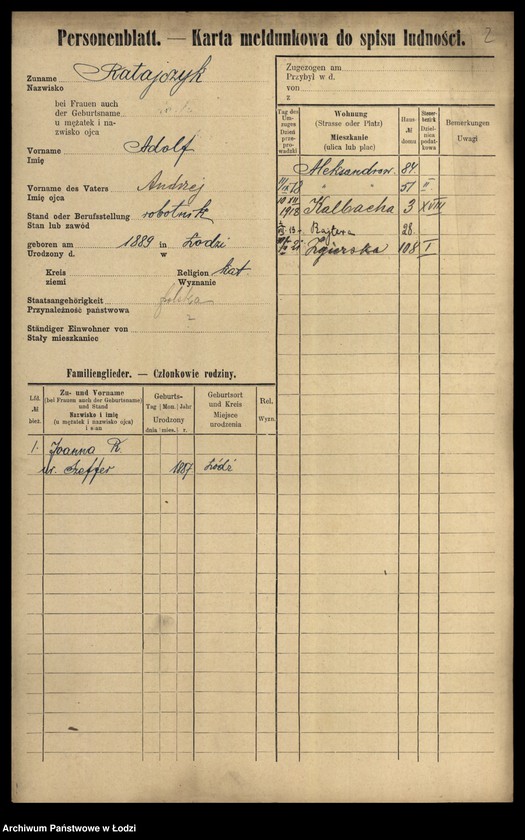 2
Personenblatt. — Karta meldunkowa do spisu ludności.
Zuname Ratajczyk
Nazwisko
bei Frauen auch
der Geburtsname
u mężatek i na-
zwisko ojca
Vorname Adolf
Imię
Vorname des Vaters Andrzej
Imię ojca
Stand oder Berufsstellung robotnik
Stan lub zawód
geboren am 1889 in Łodzi
Urodzony d. w
Kreis
ziemi
Religion kat.
Wyznanie
Staatsangehörigkeit polska
Przynależność państwowa
Ständiger Einwohner von
Stały mieszkaniec
Zugezogen am
Przybył w d.
von
z
Tag des Um-zuges Dzień prze-pro-wadzki
Wohnung (Strasse oder Platz) Mieszkanie (ulica lub plac)
Haus-№ domu
Steuer-bezirk Dziel-nica podat-kowa
Bemerkungen Uwagi
Aleksandrow. 84
" " 51 II
1913 Kalbacha 3 XVIII
Rajtera 28
Zgierska 108 I
Familienglieder. — Członkowie rodziny.
Lfd. № bież.
Zu- und Vorname (bei Frauen auch der Geburtsname) und Stand Nazwisko i imię (u mężatek i nazwisko ojca) i stan
Geburts- Tag Mon. Jahr Urodzony dnia mies. r.
Geburtsort und Kreis Miejsce urodzenia
Rel. Wyzn.
1. Joanna R.
ur. Szeffer 1887 Łódź
Archiwum Państwowe w Łodzi